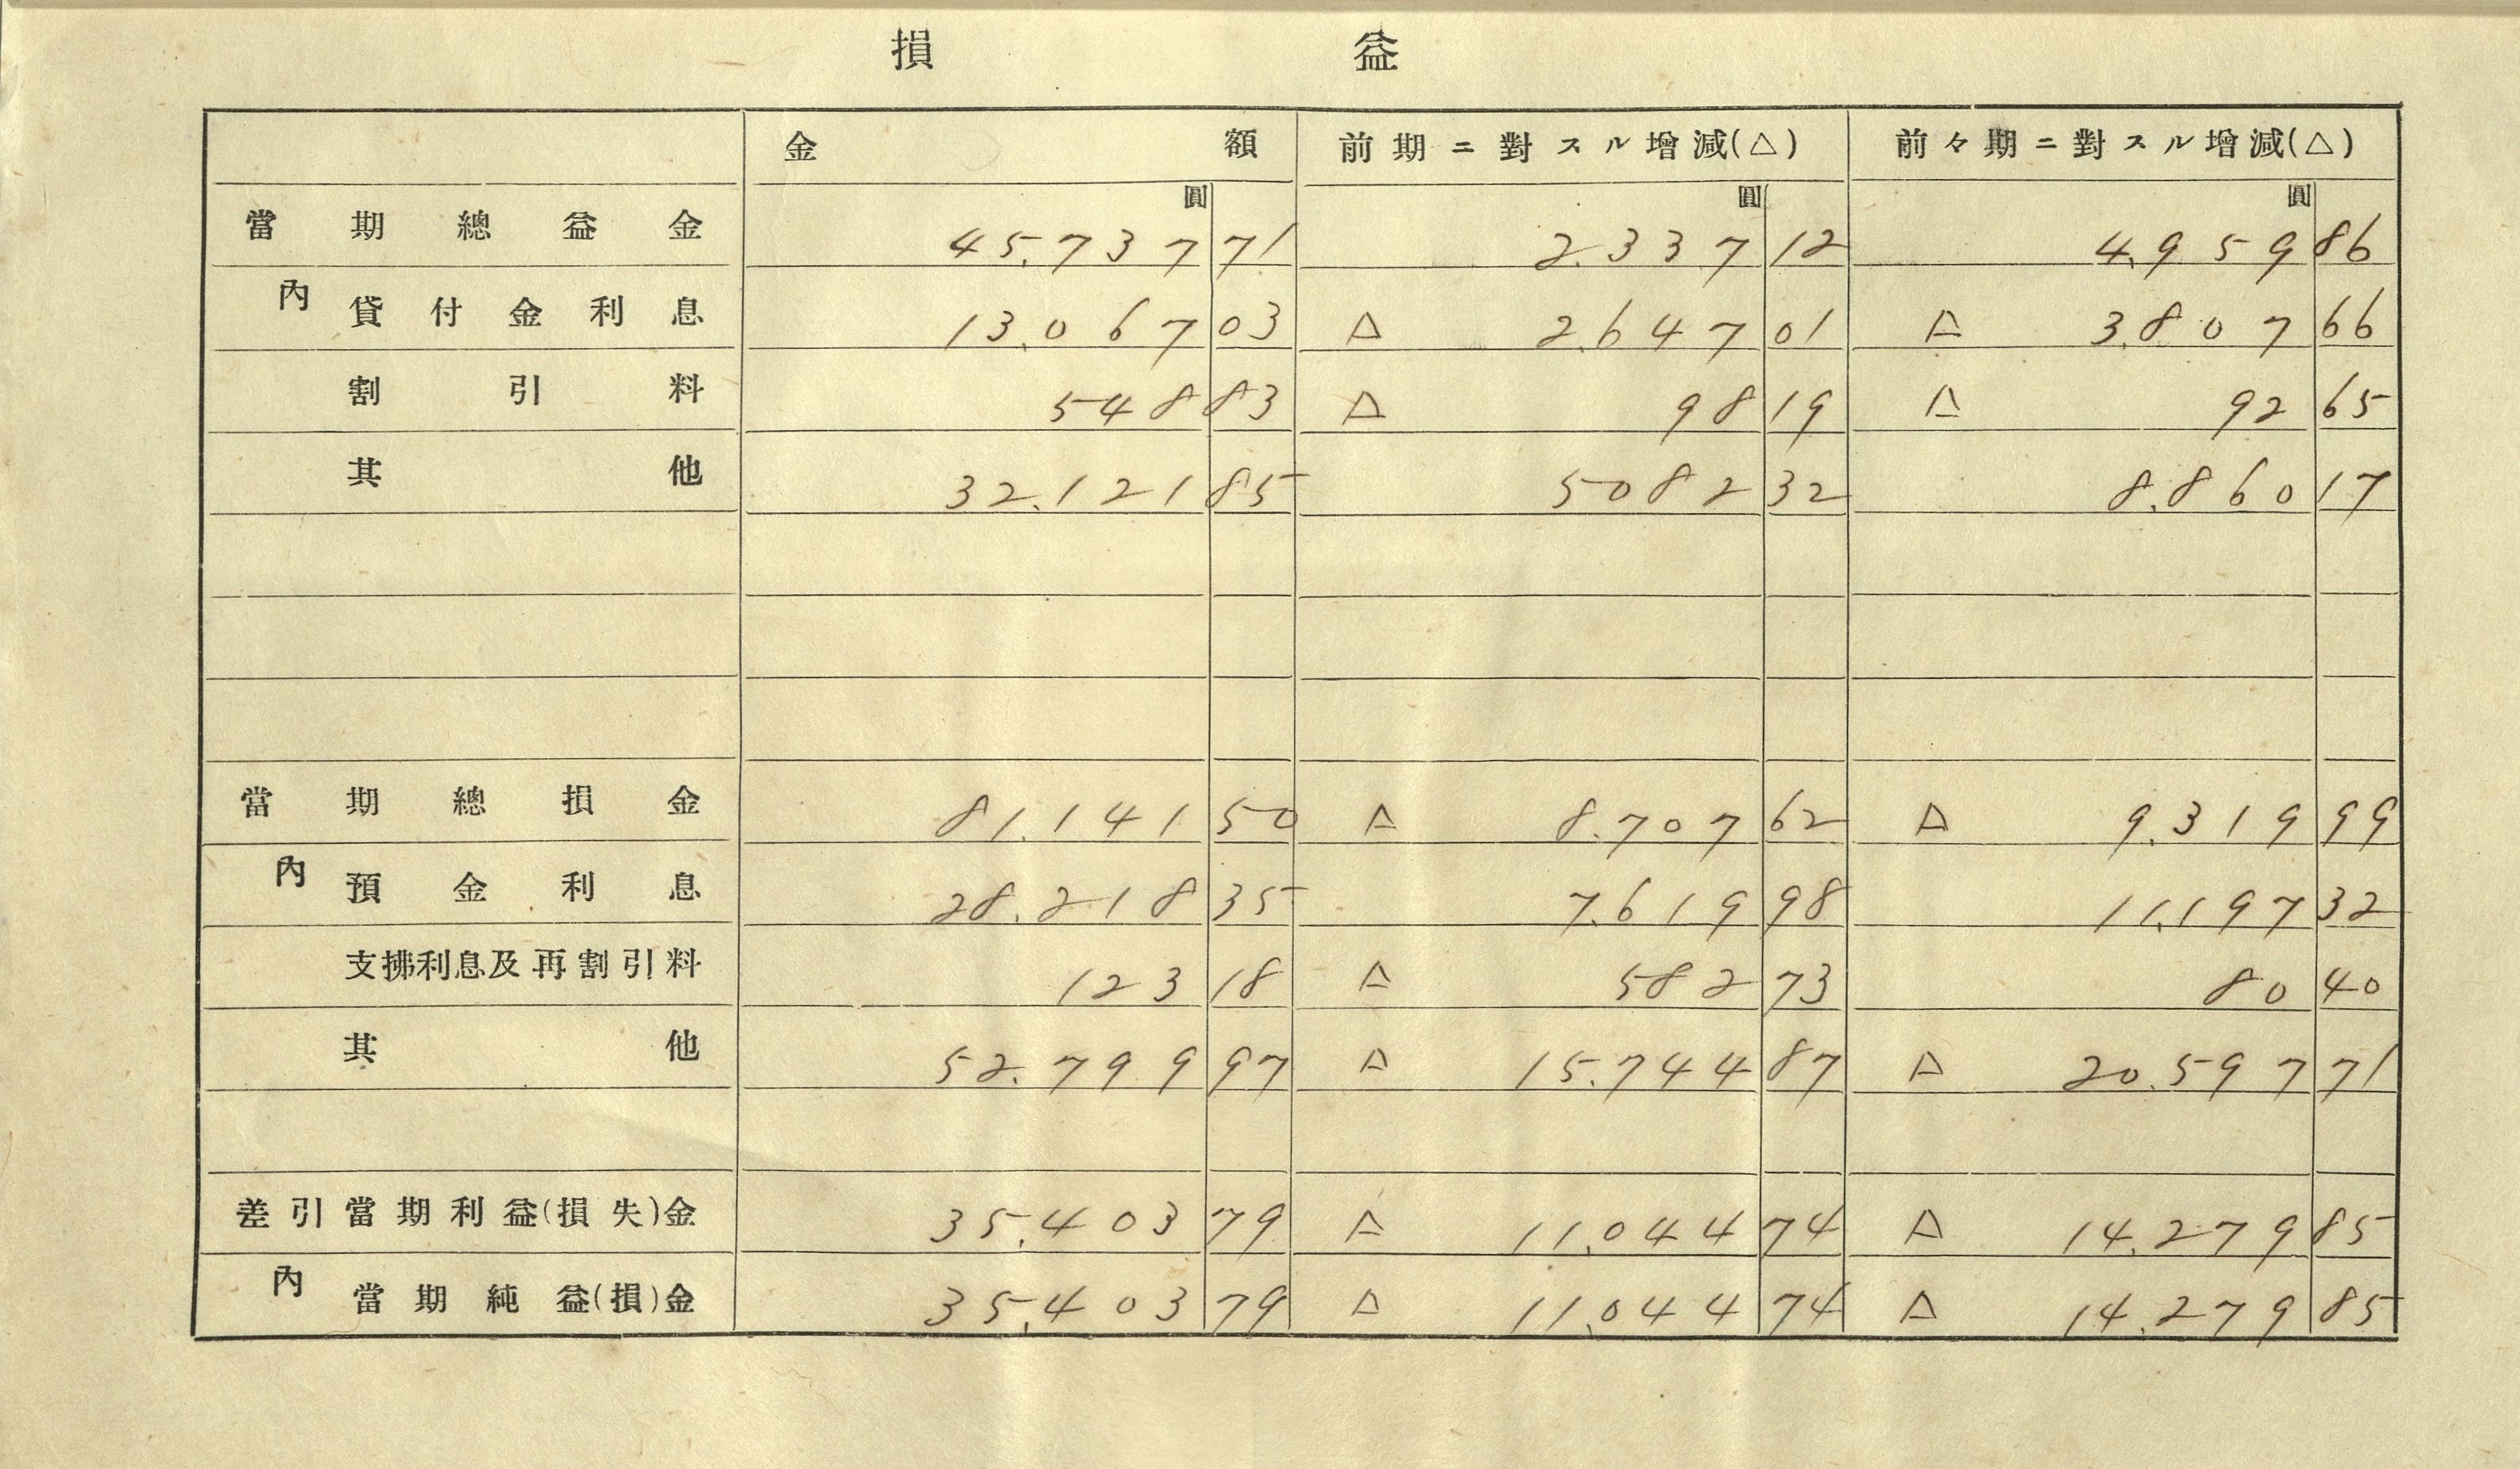 損益
金額 前期ニ對スル增減(△) 前々期ニ對スル增減(△)
圓 圓 圓
當期總益金 45,737 71 2,337 12 4,959 86
內 貸付金利息 13,067 03 △ 2,647 01 △ 3,807 66
割引料 548 83 △ 98 19 △ 92 65
其他 32,121 85 5082 32 8,860 17
當期總損金 81,141 50 △ 8,707 62 △ 9,319 99
內 預金利息 28,218 35 7,619 98 11,197 32
支拂利息及再割引料 123 18 △ 582 73 80 40
其他 52,799 97 △ 15,744 87 △ 20,597 71
差引當期利益(損失)金 35,403 79 △ 11,044 74 △ 14,279 85
內 當期純益(損)金 35,403 79 △ 11,044 74 △ 14,279 85